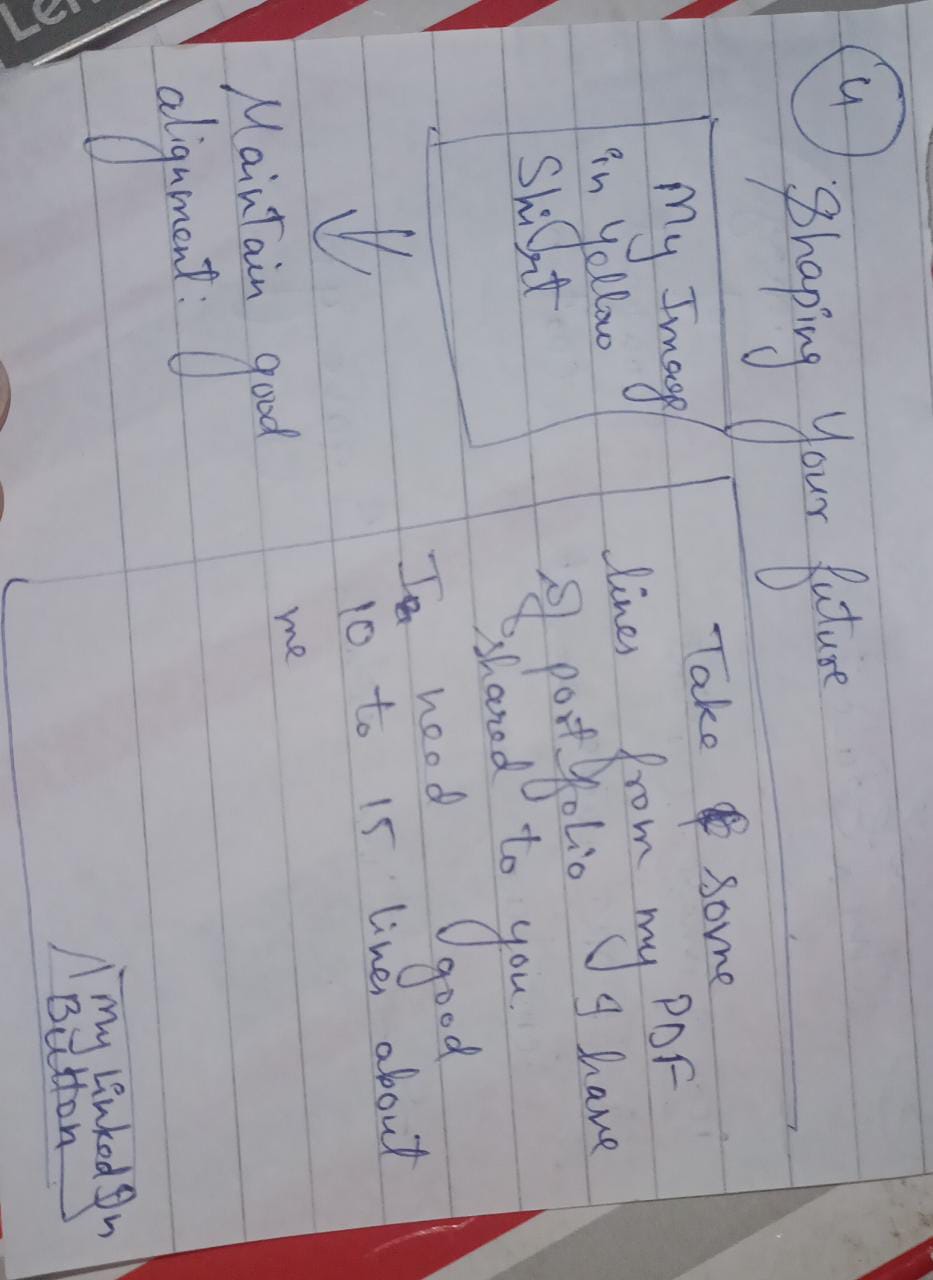 4
Shaping Your future
My Image
in yellow
Shirt
Maintain good
alignment:
Take some
lines from my PDF
of portfolio I have
shared to you.
I need good
10 to 15 lines about
me
My Linked In
Button
Len